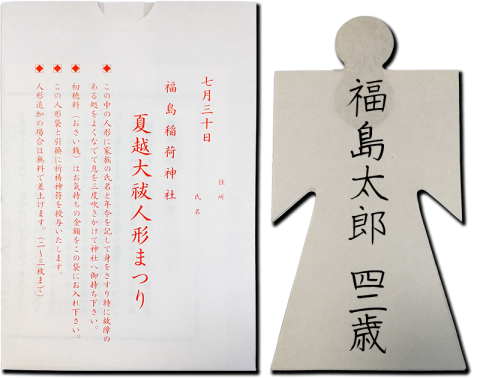 住所
氏名
七月三十日
福島稲荷神社
夏越大祓人形まつり
この中の人形に家族の氏名と年令を記して身をさすり特に故障の
ある処をよくなでて息を三度吹きかけて神社へ御持ち下さい。
初穂料(おさい銭)はお気持ちの金額をこの袋にお入れ下さい。
この人形袋と引換に祈祷神符を授与いたします。
人形追加の場合は無料で差上げます。(二〜三枚まで)
福島太郎 四二歳